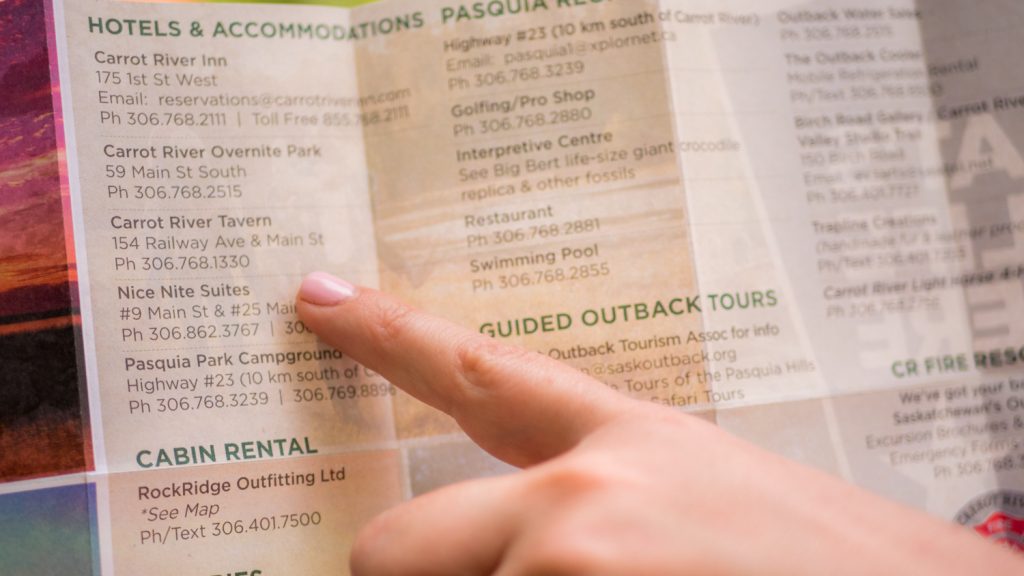 HOTELS & ACCOMMODATIONS
Carrot River Inn
175 1st St West
Email: reservations@carrotriverinn.com
Ph 306.768.2111 | Toll Free 855.768.2111
Carrot River Overnite Park
59 Main St South
Ph 306.768.2515
Carrot River Tavern
154 Railway Ave & Main St
Ph 306.768.1330
Nice Nite Suites
#9 Main St & #25 Main
Ph 306.862.3767 |
Pasquia Park Campground
Highway #23 (10 km south of
Ph 306.768.3239 | 306.769.8896
CABIN RENTAL
RockRidge Outfitting Ltd
*See Map
Ph/Text 306.401.7500
PASQUIA
Highway #23 (10 km south of Carrot River)
Email: pasquia1@xplornet.ca
Ph 306.768.3239
Golfing/Pro Shop
Ph 306.768.2880
Interpretive Centre
See Big Bert life-size giant crocodile
replica & other fossils
Restaurant
Ph 306.768.2881
Swimming Pool
Ph 306.768.2855
GUIDED OUTBACK TOURS
Outback Tourism Assoc for info
@saskoutback.org
Tours of the Pasquia Hills
Safari Tours
Outback Water
The Outback
Mobile Refrigeration
Ph/Text
Birch Road Gallery / Carrot River
Valley Trail
150 Birch Road
Trapline Creations
Carrot River Light Horse
CR FIRE
We've got your
Saskatchewan's
Excursion Brochures &
Emergency
Ph 306.768